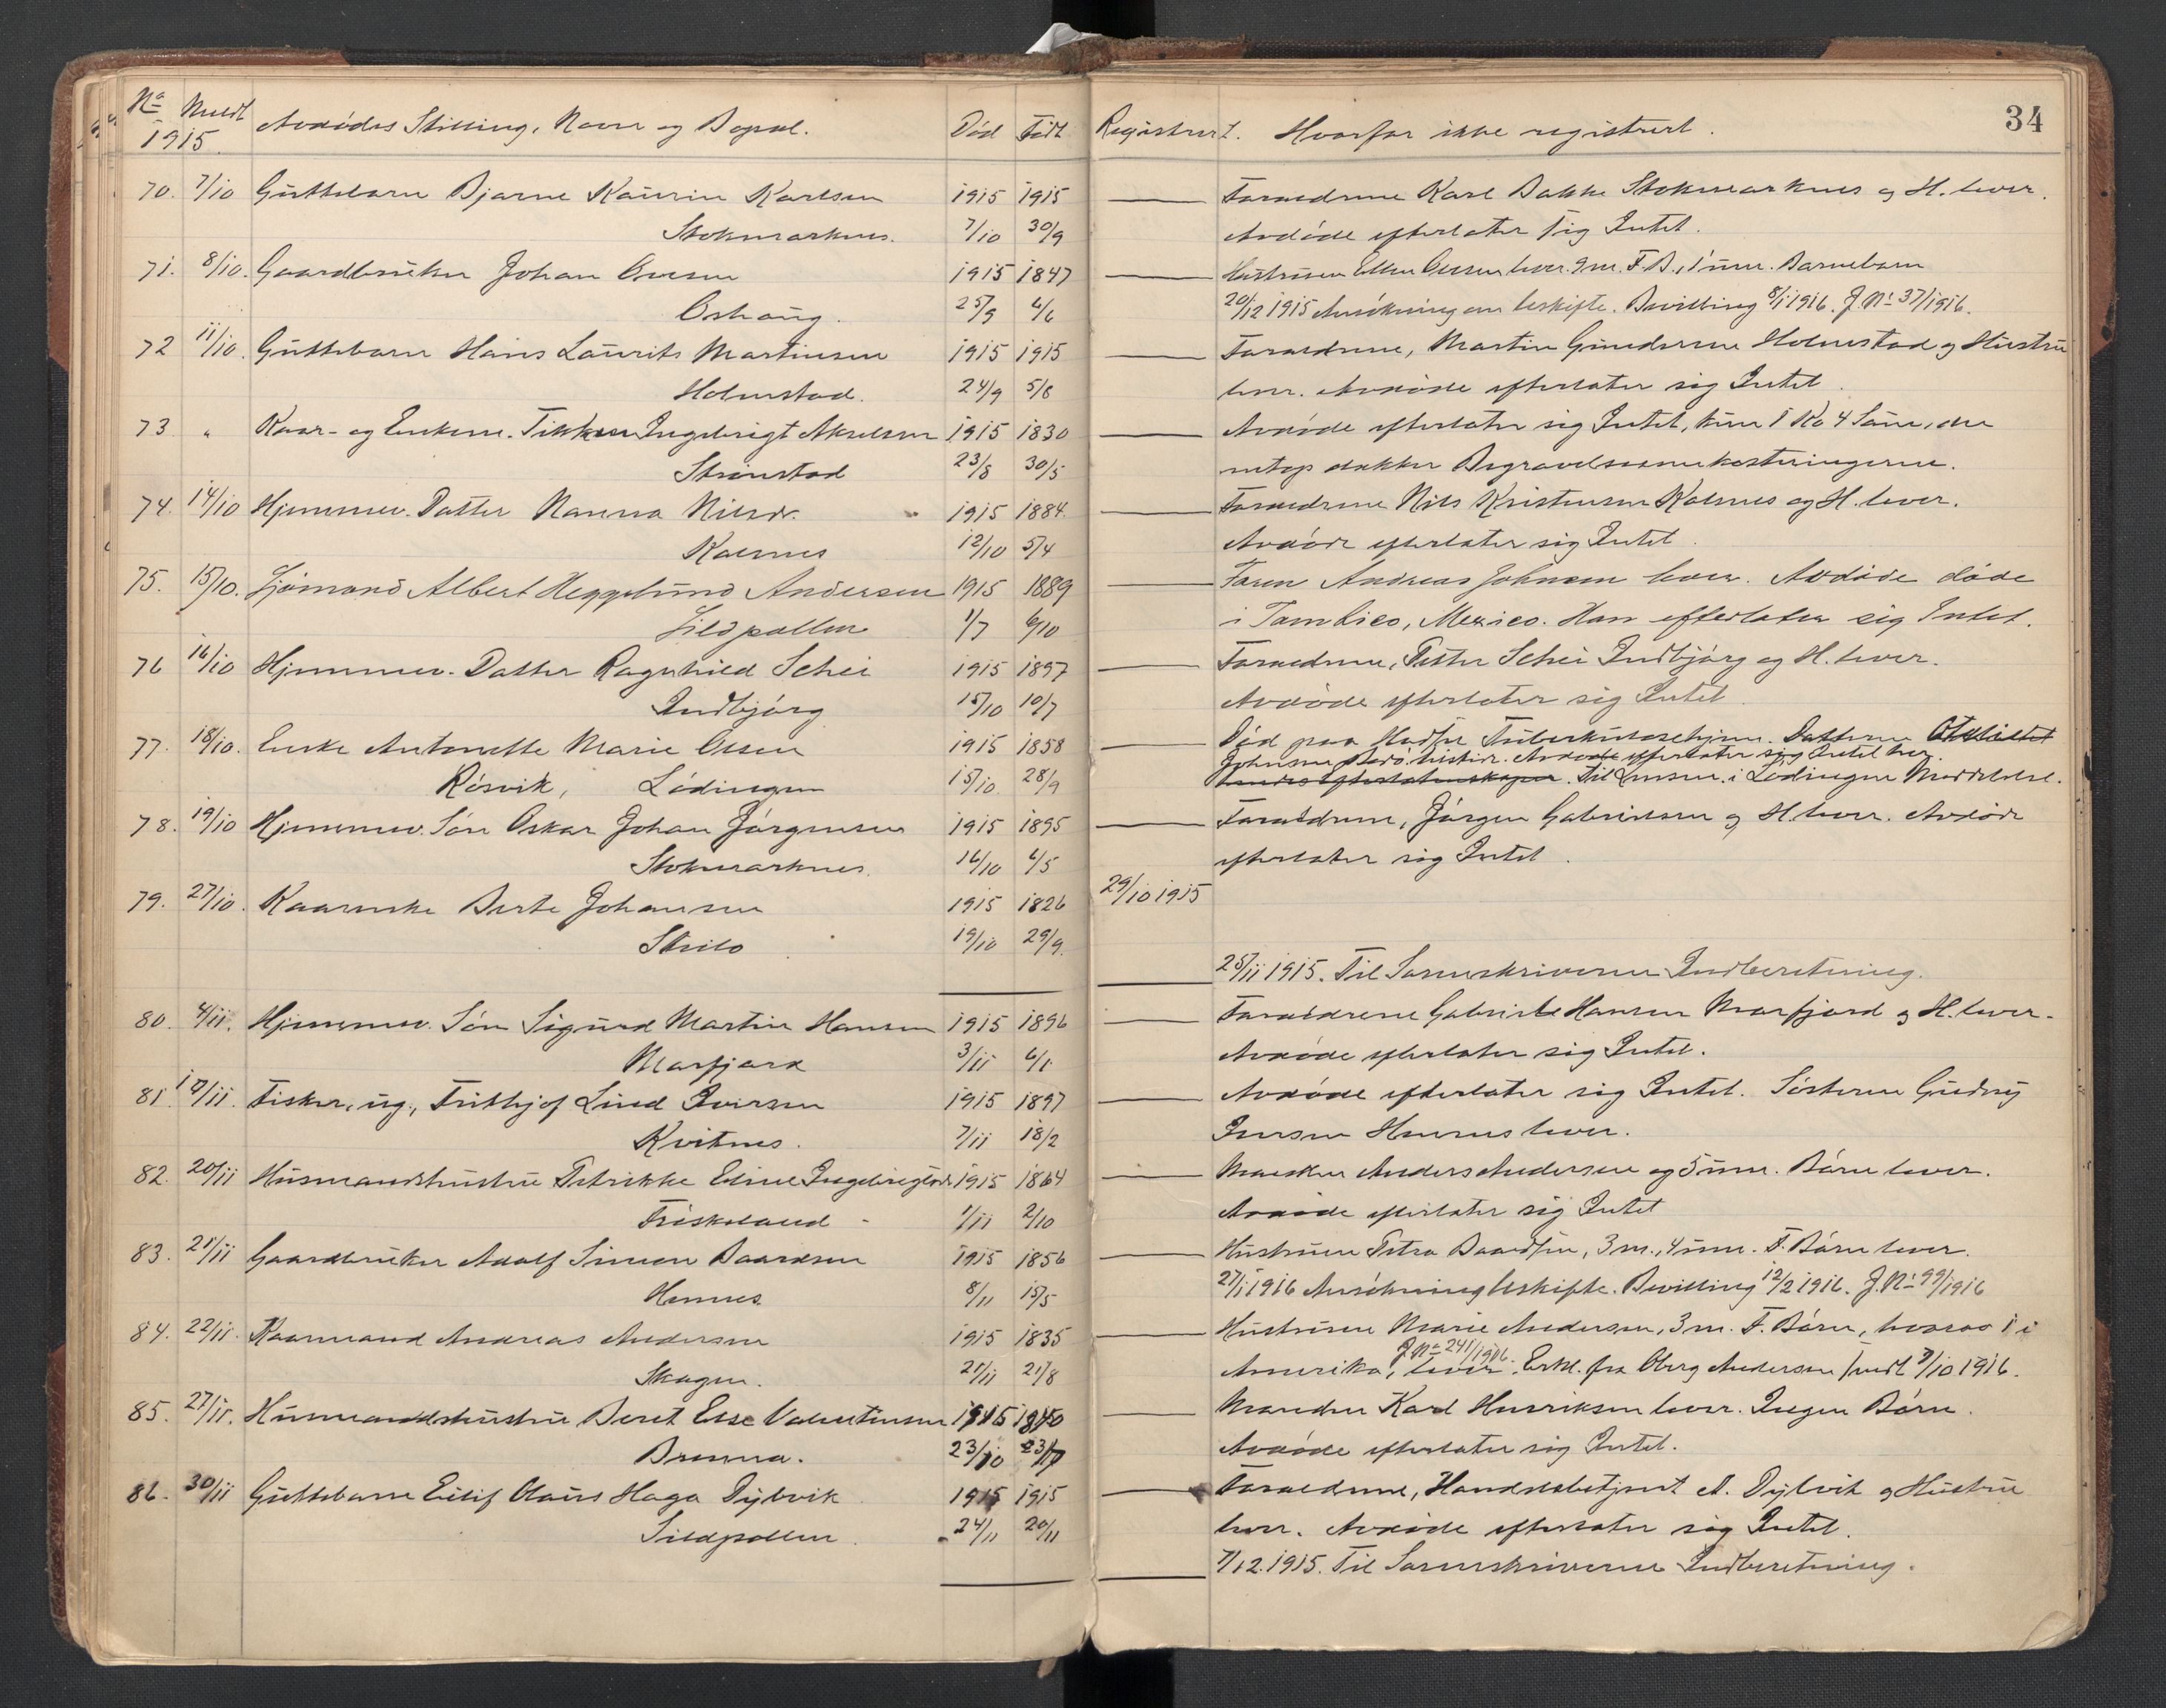 34
No Meldt Avdødes Stilling, Navn og Bopæl. Død Født Registrert. Hvorfor ikke registrert.
1915
70. 7/10 Guttebarn Bjarne Kaurin Karlsen 1915 1915 Forældrene Karl Bakke Stokmarknes og H. lever.
Stokmarknes. 7/10 30/9 Avdøde efterlater sig Intet.
71. 8/10. Gaardbruker Johan Olsen 1915 1847 Hustruen Ellen Olsen lever. 9 m. F. B., 1 um. Barnebarn
Oshaug. 25/9 6/6 20/12 1915 Ansøkning om uskifte. Bevilling 8/1 1916. J. No 37/1916.
72 11/10. Guttebarn Hans Laurits Martinsen 1915 1915 Forældrene, Martin Gundersen Holmstad og Hustru
Holmstad. 24/9 5/8 lever. Avdøde efterlater sig Intet.
73 " Kaar- og Enkem. Ingebrigt Akselsen 1915 1830 Avdøde efterlater sig Intet, kun 1 Ko 4 Sauer, der
Strinstad 23/8 30/5 netop dækker Begravelsesomkostningerne.
74. 14/10 Hjemmev. Datter Nanna Nilsdr. 1915 1884. Forældrene Nils Kristensen Kalsnes og H. lever.
Kalsnes 12/10 5/4 Avdøde efterlater sig Intet.
75. 15/10. Sjømand Albert Hegglund Andersen 1915 1889 Faren Andreas Johnsen lever. Avdøde døde
Sildpollen 1/7 6/10 i Tambico, Mexico. Han efterlater sig Intet.
76 16/10 Hjemmev. Datter Ragnhild Schei 1915 1897 Forældrene, Petter Schei Indbjørg og H. lever.
Indbjørg 15/10 10/7 Avdøde efterlater sig Intet
77. 18/10. Enke Antonette Marie Olsen 1915 1858 Død paa Hadsel Tuberkulosehjem. Datteren
Røsvik, Lødingen 15/10. 28/9 Johnsen Bodø bestyr. Avdøde efterlater sig Intet her
Til Lensm. i Lødingen Meddelelse.
78. 19/10 Hjemmev. Søn Oskar Johan Jørgensen 1915 1895 Forældrene, Jørgen Gabrielsen og H. lever. Avdøde
Stokmarknes. 16/10 6/5 efterlater sig Intet.
79. 27/10. Kaarenke Berte Johansen 1915 1826 29/10 1915
Strilo 19/10 29/9.
25/11 1915. Til Sorenskriveren Indberetning.
80. 4/11. Hjemmev. Søn Sigurd Martin Hansen 1915 1896 Forældrene Gabriel Hansen Morfjord og H. lever.
Morfjord 3/11 6/1 Avdøde efterlater sig Intet.
81. 10/11. Fisker, ug., Frithjof Lind Iversen 1915 1897 Avdøde efterlater sig Intet. Søsteren Gudny
Kvitnes. 7/11 18/2 Iversen Hennes lever.
82. 20/11 Husmandshustru Petrikke Eline Ingebrigtsd. 1915 1864 Manden Anders Andersen og 5 um. Børn lever.
Friskeland 1/11 2/10 Avdøde efterlater sig Intet
83. 21/11 Gaardbruker Adolf Simon Baardsen 1915 1856 Hustruen Petra Baardsen, 3 m., 4 um. F. Børn lever.
Hennes. 8/11 15/5 27/1 1916 Ansøkning Uskifte. Bevilling 12/2 1916. J. No 99/1916
84. 22/11. Kaarmand Andreas Andersen 1915 1835 Hustruen Marie Andersen, 3 m. F. Børn, hvorav 1 i
J. No 241/1916.
Skagen. 21/11 21/8 Amerika, lever. Erkl. fra Oberg Andersen 7/10 1916.
85. 27/11. Husmandshustru Beret Else Valentinsen 1915 1840 Manden Karl Henriksen lever. Ingen Børn.
Brenna. 23/10 23/7 Avdøde efterlater sig Intet.
86. 30/11 Guttebarn Eilif Claus Haga Dybvik 1915 1915 Forældrene, Handelsbetjent A. Dybvik og Hustru
Sildpollen. 24/11 20/11 lever. Avdøde efterlater sig Intet.
7/12. 1915. Til Sorenskriveren Indberetning.